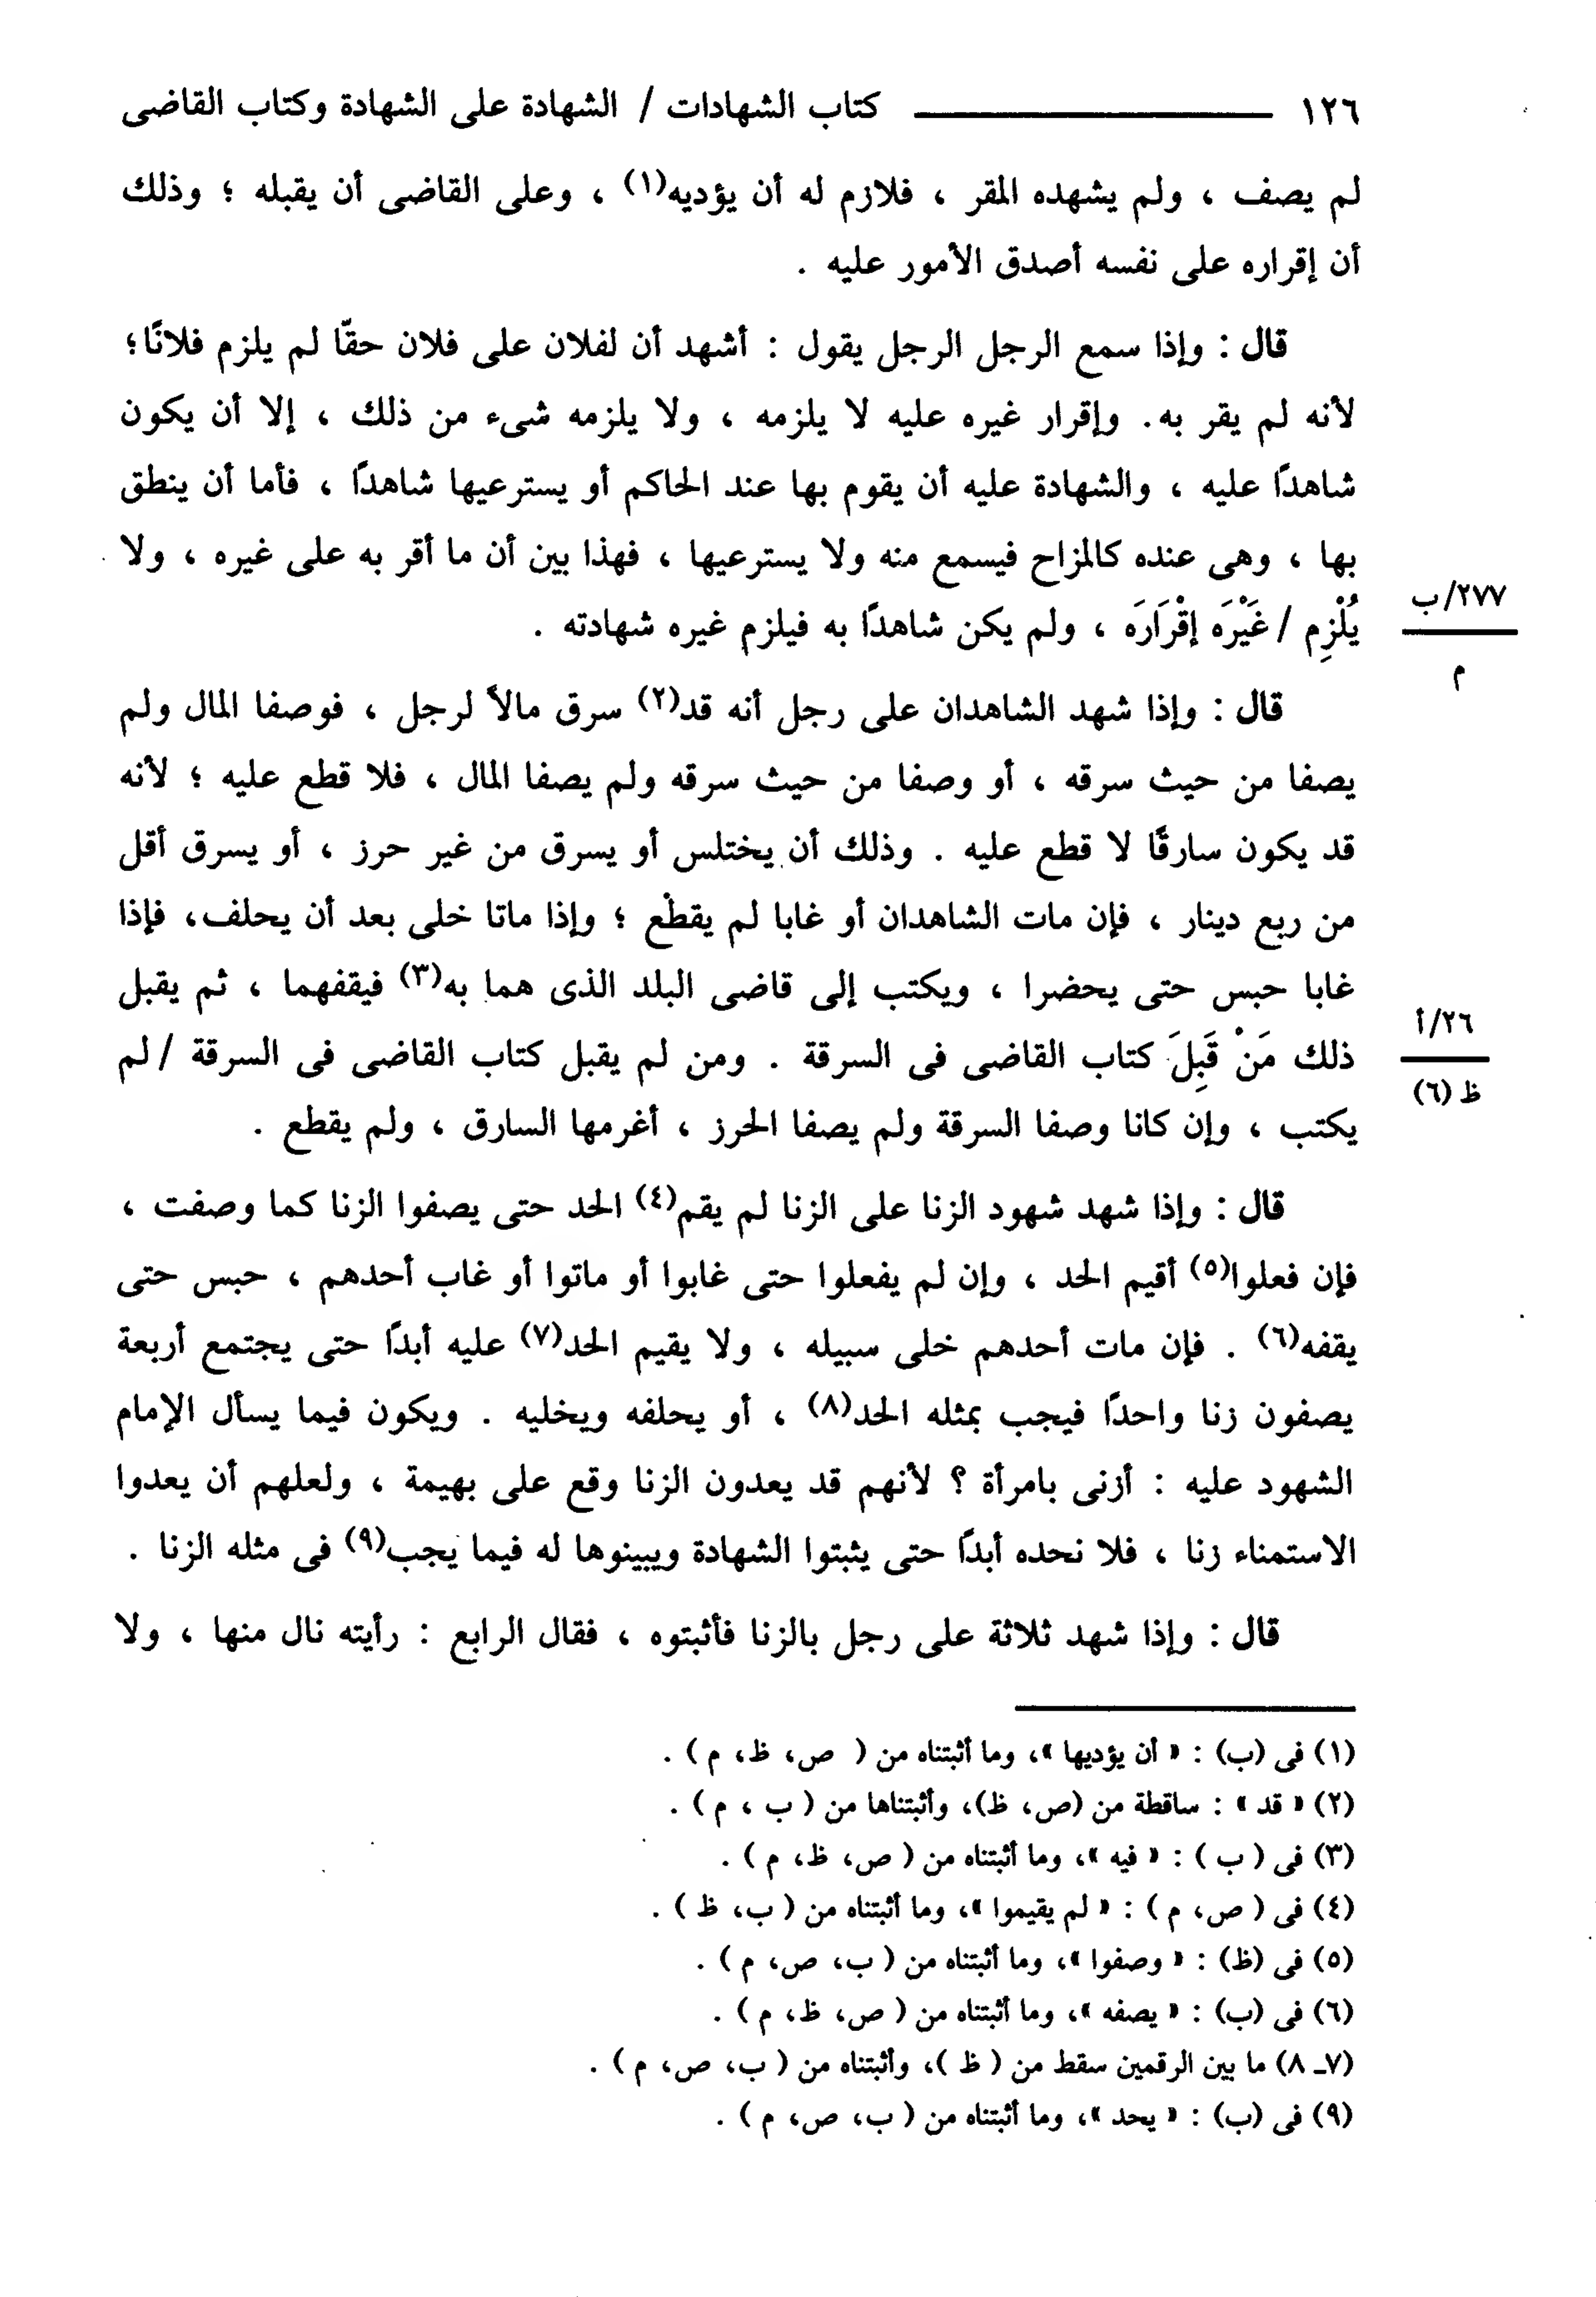 ١٢٦ كتاب الشهادات / الشهادة على الشهادة وكتاب القاضى
لم يصف ، ولم يشهده المقر ، فلازم له أن يؤديه(١) ، وعلى القاضى أن يقبله ؛ وذلك
أن إقراره على نفسه أصدق الأمور عليه .
قال : وإذا سمع الرجل الرجل يقول : أشهد أن لفلان على فلان حقّا لم يلزم فلانًا؛
لأنه لم يقر به. وإقرار غيره عليه لا يلزمه ، ولا يلزمه شىء من ذلك ، إلا أن يكون
شاهدًا عليه ، والشهادة عليه أن يقوم بها عند الحاكم أو يسترعيها شاهدًا ، فأما أن ينطق
بها ، وهى عنده كالمزاح فيسمع منه ولا يسترعيها ، فهذا بين أن ما أقر به على غيره ، ولا
٢٧٧/ب
يُلْزِم / غَيْرَه إقْرَارَه ، ولم يكن شاهدًا به فيلزم غيره شهادته .
م
قال : وإذا شهد الشاهدان على رجل أنه قد(٢) سرق مالاً لرجل ، فوصفا المال ولم
يصفا من حيث سرقه ، أو وصفا من حيث سرقه ولم يصفا المال ، فلا قطع عليه ؛ لأنه
قد يكون سارقًا لا قطع عليه . وذلك أن يختلس أو يسرق من غير حرز ، أو يسرق أقل
من ربع دينار ، فإن مات الشاهدان أو غابا لم يقطع ؛ وإذا ماتا خلى بعد أن يحلف، فإذا
غابا حبس حتى يحضرا ، ويكتب إلى قاضى البلد الذى هما به(٣) فيقفهما ، ثم يقبل
٢٦/أ
ذلك مَنْ قَبِلَ كتاب القاضى فى السرقة . ومن لم يقبل كتاب القاضى فى السرقة / لم
ظ (٦)
يكتب ، وإن كانا وصفا السرقة ولم يصفا الحرز ، أغرمها السارق ، ولم يقطع .
قال : وإذا شهد شهود الزنا على الزنا لم يقم(٤) الحد حتى يصفوا الزنا كما وصفت ،
فإن فعلوا(٥) أقيم الحد ، وإن لم يفعلوا حتى غابوا أو ماتوا أو غاب أحدهم ، حبس حتى
يقفه(٦) . فإن مات أحدهم خلى سبيله ، ولا يقيم الحد(٧) عليه أبدًا حتى يجتمع أربعة
يصفون زنا واحدًا فيجب بمثله الحد(٨) ، أو يحلفه ويخليه . ويكون فيما يسأل الإمام
الشهود عليه : أزنى بامرأة ؟ لأنهم قد يعدون الزنا وقع على بهيمة ، ولعلهم أن يعدوا
الاستمناء زنا ، فلا نحده أبدًا حتى يثبتوا الشهادة ويبينوها له فيما يجب(٩) فى مثله الزنا .
قال : وإذا شهد ثلاثة على رجل بالزنا فأثبتوه ، فقال الرابع : رأيته نال منها ، ولا
(١) فى (ب) : « أن يؤديها »، وما أثبتناه من ( ص، ظ، م ) .
(٢) « قد » : ساقطة من (ص، ظ)، وأثبتناها من ( ب ، م ) .
(٣) فى ( ب ) : « فيه »، وما أثبتناه من ( ص، ظ، م ) .
(٤) فى ( ص، م ) : « لم يقيموا »، وما أثبتناه من ( ب، ظ ) .
(٥) فى (ظ) : « وصفوا »، وما أثبتناه من ( ب، ص، م ) .
(٦) فى (ب) : « يصفه »، وما أثبتناه من ( ص، ظ، م ) .
(٧ـ ٨) ما بين الرقمين سقط من ( ظ )، وأثبتناه من ( ب، ص، م ) .
(٩) فى (ب) : « يحد »، وما أثبتناه من ( ب، ص، م ) .